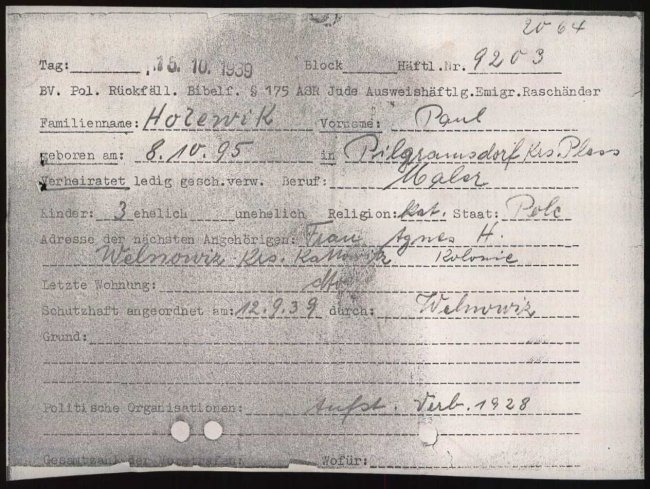 20 64
Tag: 16. 10. 1939 Block Häftl.Nr. 9203
BV. Pol. Rückfäll. Bibelf. § 175 ASR Jude Ausweishäftlg.Emigr.Raschänder
Familienname: Holewik Vorname: Paul
geboren am: 8.10.95 in Pilgramsdorf Krs. Pless
Verheiratet ledig gesch.verw. Beruf: Maler
Kinder: 3 ehelich unehelich Religion: Kat. Staat: Pole
Adresse der nächsten Angehörigen: Frau Agnes H.
Welnowiz Krs. Kattowitz Kolonie
Letzte Wohnung: dto
Schutzhaft angeordnet am: 12.9.39 durch: Welnowiz
Grund:
Politische Organisationen: Aufst. Verb. 1928
Gesamtzahl der Vorstrafen: Wofür: